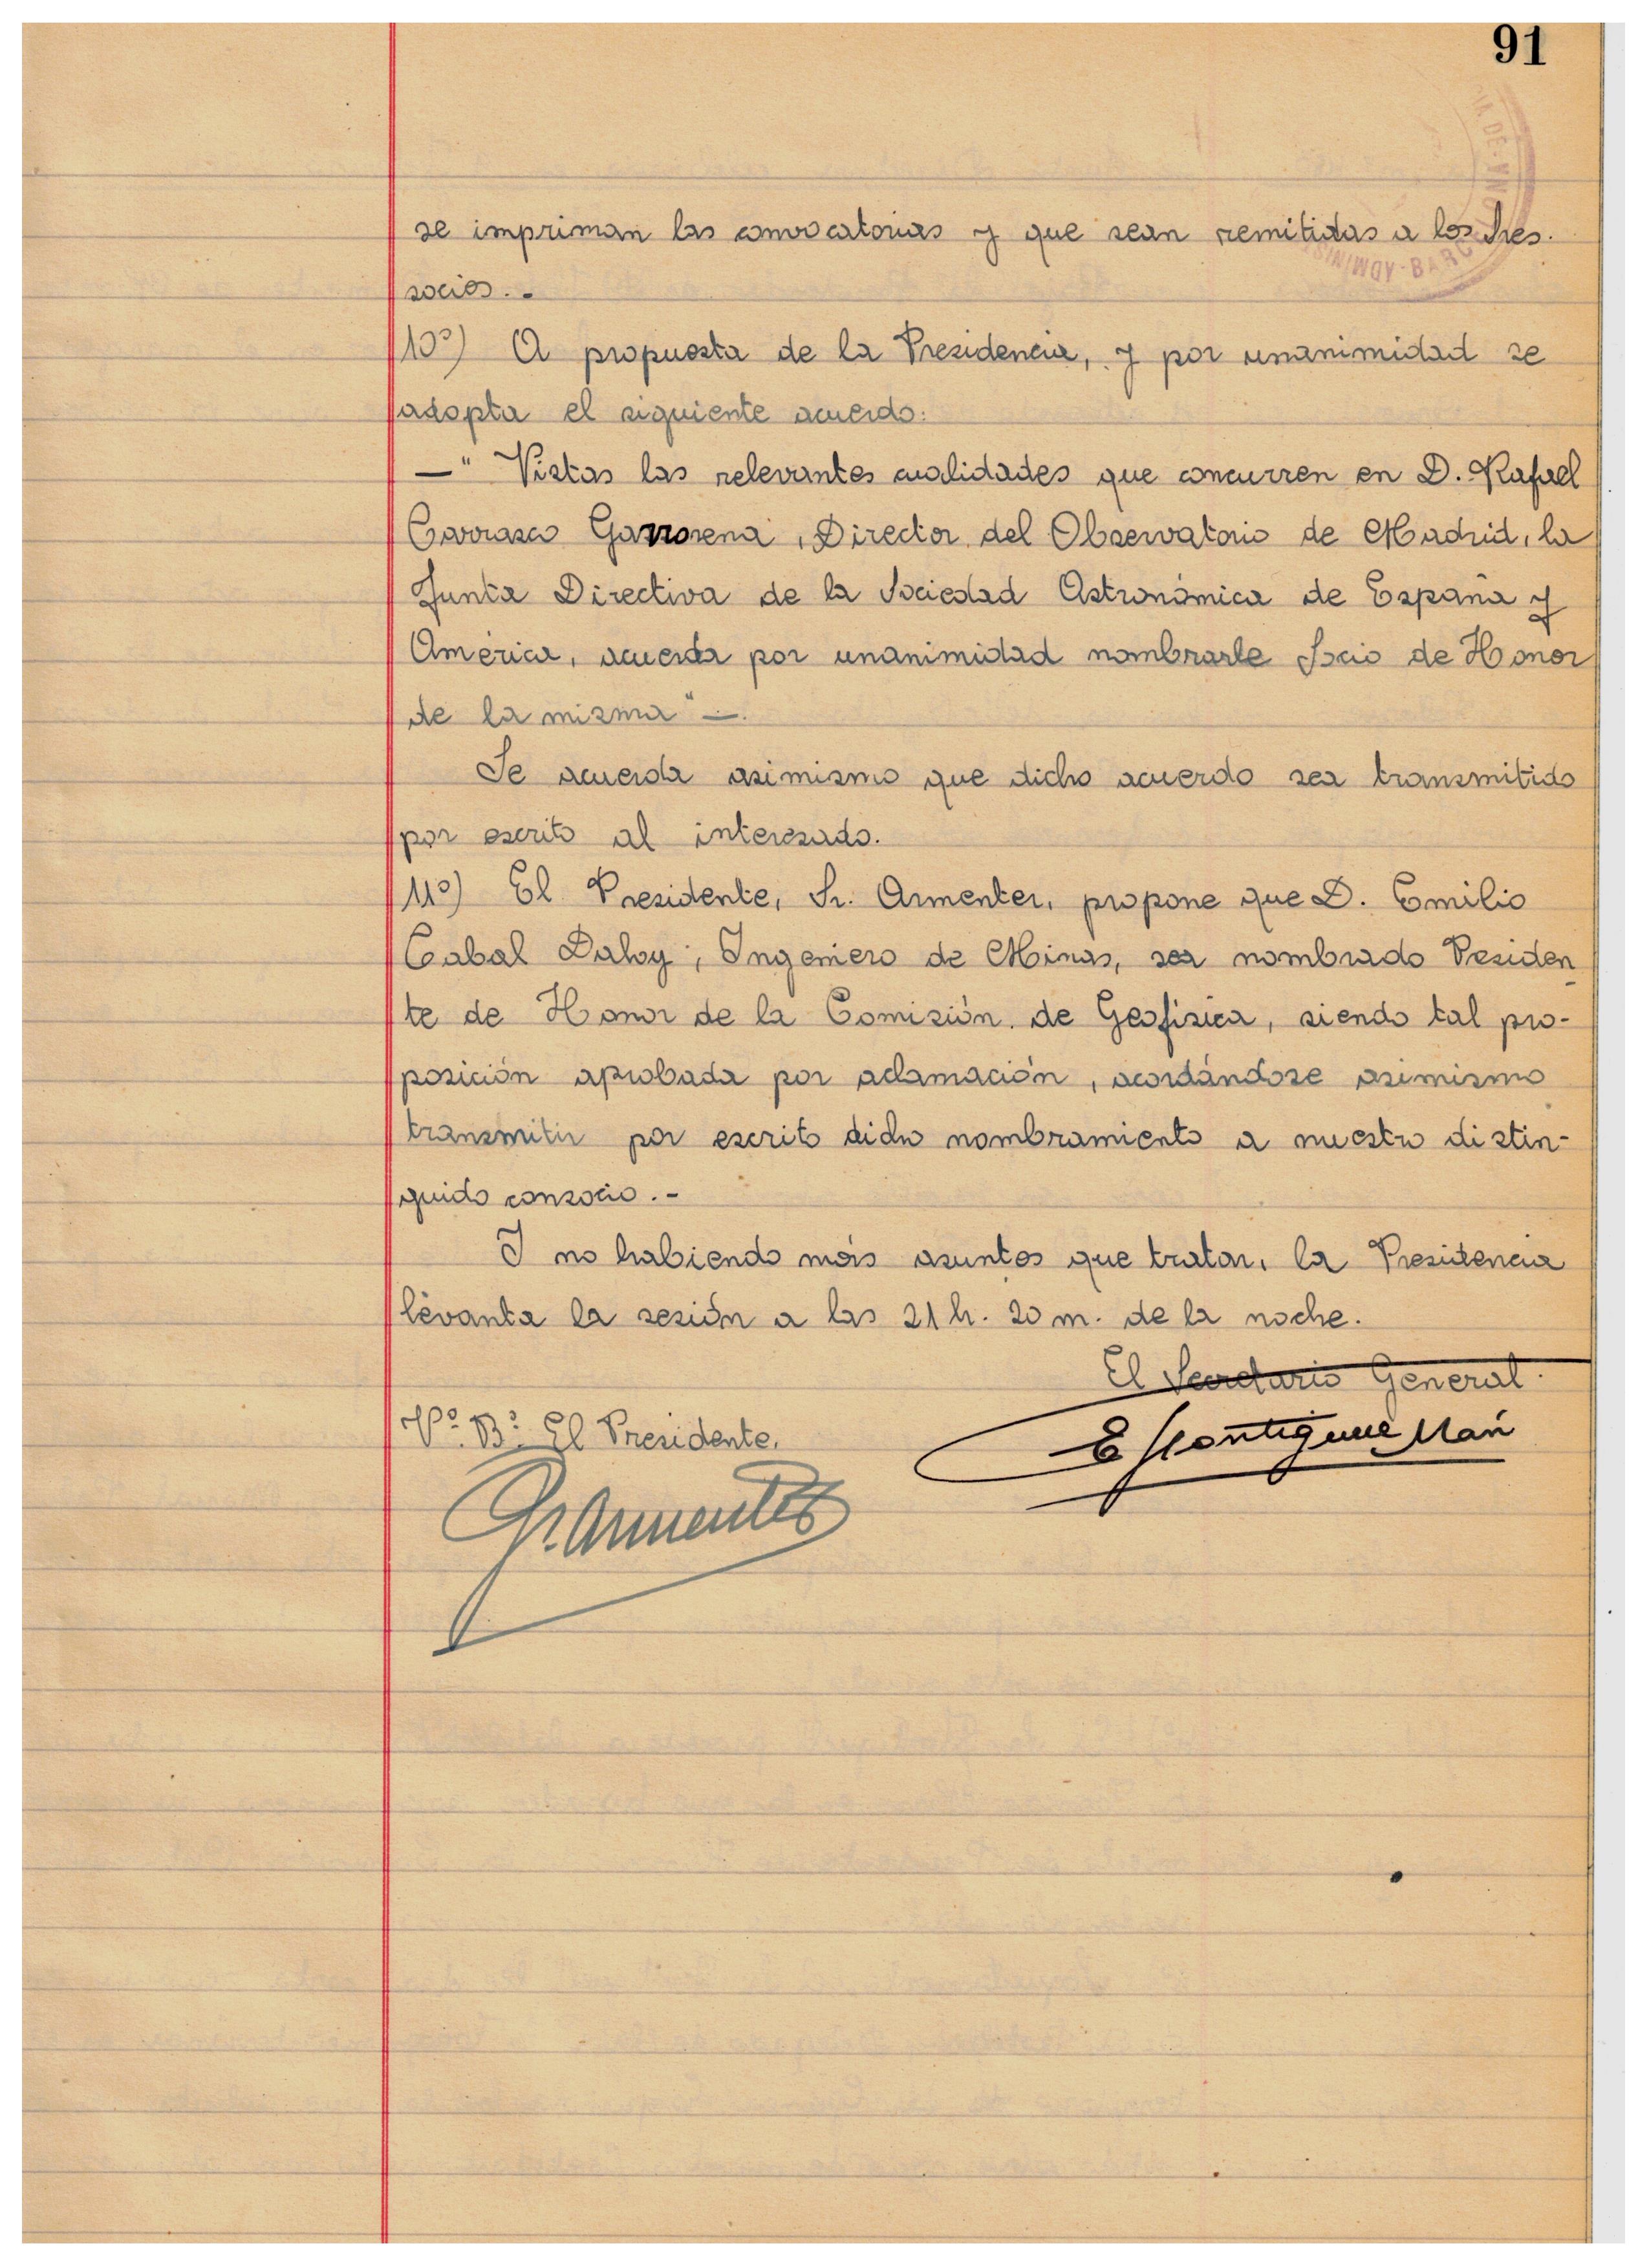 91
se impriman las convocatorias y que sean remitidas a los Sres.
socios.-
10º) A propuesta de la Presidencia, y por unanimidad se
adopta el siguiente acuerdo:
—" Vistas las relevantes cualidades que concurren en D. Rafael
Carrasco Garrorena, Director del Observatorio de Madrid, la
Junta Directiva de la Sociedad Astronómica de España y
América, acuerda por unanimidad nombrarle Socio de Honor
de la misma"—.
Se acuerda asimismo que dicho acuerdo sea transmitido
por escrito al interesado.
11º) El Presidente, Sr. Armenter, propone que D. Emilio
Cabal Daloy, Ingeniero de Minas, sea nombrado Presiden
te de Honor de la Comisión de Geofísica, siendo tal pro-
posición aprobada por aclamación, acordándose asimismo
transmitir por escrito dicho nombramiento a nuestro distin-
guido consocio.-
I no habiendo más asuntos que tratar, la Presidencia
levanta la sesión a las 21 h. 20 m. de la noche.
El Secretario General.
Vº. Bº. El Presidente.
Armenter